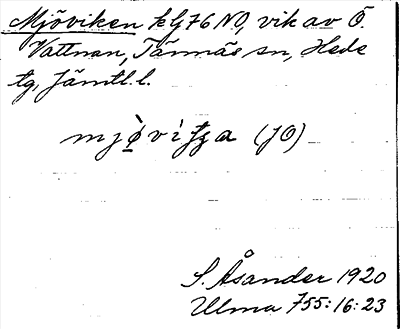 Mjöviken klg76 NO, vik av Ö.
Vattnan, Tännäs sn, Hede
tg, Jämtl. l.
mjö̀vìtʒa (JO)
S. Åsander 1920
Ulma 755:16:23